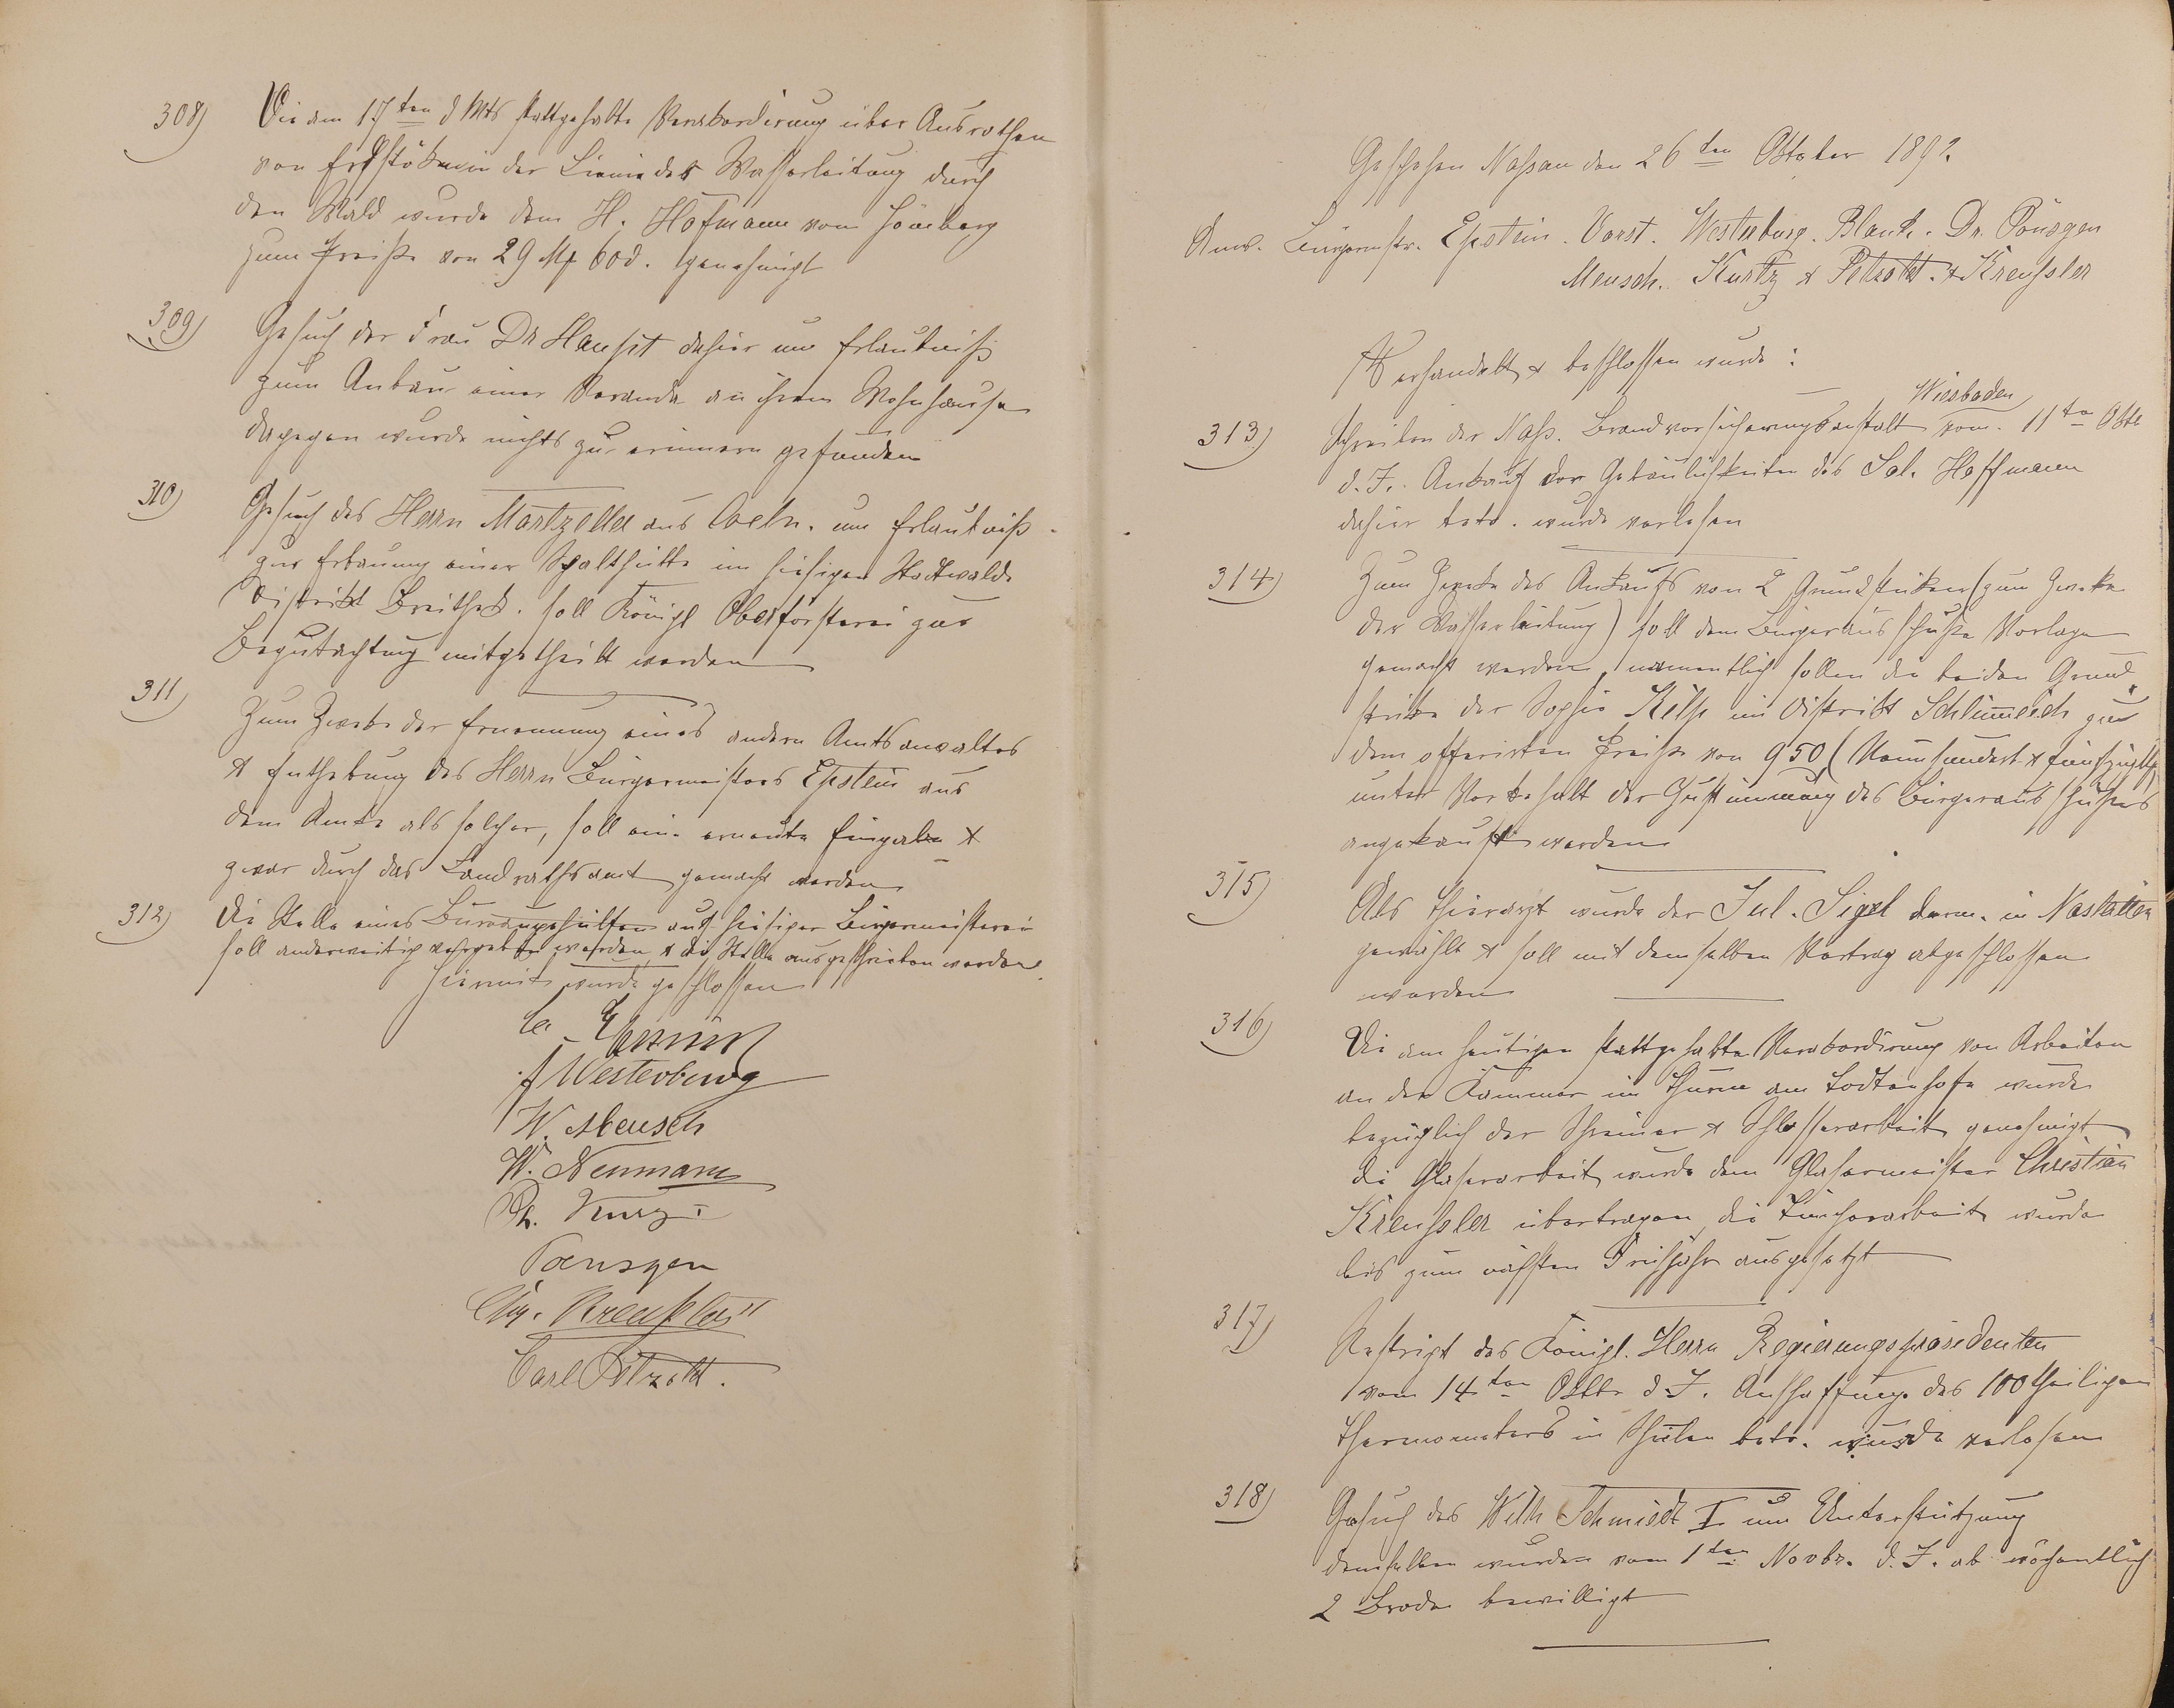 308) Die am 17ten d Mts stattgehabte Verakkordirung über Ausrothen
von Erdstöken in der Linie der Wasserleitung durch
den Wald wurde dem H. Hofmann von Hömberg
zum Preiße von 29 Mk 60 d. genehmigt
309) Gesuch der Frau Dr Haupt dahier um Erlaubniß
zum Anbau einer Veranda an ihrem Wohnhause
dagegen wurde nichts zu erinnern gefunden
310) Gesuch des Herrn Martzeller aus Coeln. um Erlaubniß
zur Erbauung einer Schutzhütte im hiesigen Stadtwalde
Distrikt Breitheck. soll Königl Oberförsterei zur
Begutachtung mitgetheilt werden
311) Zum Zwecke der Ernennung eines andern Amtsanwaltes
& Enthebung des Herrn Bürgermeisters Epstein aus
dem Amte als solcher, soll eine erneute Eingabe &
zwar durch das Landrathsamt gemacht werden
312) Die Stelle eines Bureaugehülfen auf hiesiger Bürgermeisterei
soll anderweitig vergeben werden & die Stelle ausgeschrieben werden
Hiermit wurde geschlossen
Epstein
Westerburg
W. Mensch
W. Neumann
Ph. Kurz
Poensgen
Chr. Kreußler
Carl Petzold.
Geschehen Naßau den 26ten Oktober 1892.
Anw. Bürgermstr. Epstein. Vorst. Westerburg. Blank. Dr. Pönsgen
Mensch. Kurtz & Petzold. & Kreußler
Verhandelt & beschlossen wurde:
Wiesbaden
313) Schreiben der Naß. Brandversicherungsanstalt vom 11ten Oktb
d. J. Ankauf der Gebäulichkeiten des Sal. Hoffmann
dahier betr. wurde verlesen
314) Zum Zwecke des Ankaufs von 2 Grundstücken (zum Zwecke
der Wasserleitung) soll dem Bürgerausschuße Vorlage
gemacht werden, namentlich sollen die beiden Grund
stücke der Sophie Kilp im Distrikt Schlimmeich zu
dem offerirten Preiße von 950 (Neunhundert & fünfzig Mk)
unter Vorbehalt der Zustimmung des Bürgerausschußes
angekauft werden
315) Als Thierarzt wurde der Jul. Sigel derm. in Nastätten
gewählt & soll mit demselben Vertrag abgeschlossen
werden
316) Die am heutigen stattgehabte Verakkordirung von Arbeiten
an der Kammer im Thurm am Todtenhofe wurde
bezüglich der Schreiner & Schlosserarbeit genehmigt
die Glaserarbeit wurde dem Glasermeister Christian
Kreußler übertragen, die Tüncherarbeit wurde
bis zum nächsten Frühjahr ausgesetzt
317) Reskript des Königl. Herrn Regierungspräsidenten
vom 14ten Oktbr d J. Anschaffung des 100theiligen
Thermometers in Schulen betr. wurde verlesen
318) Gesuch des Wilh Schmidt I um Unterstützung
demselben wurden vom 1ten Novbr. d. J. ab wöchentlich
2 Brode bewilligt